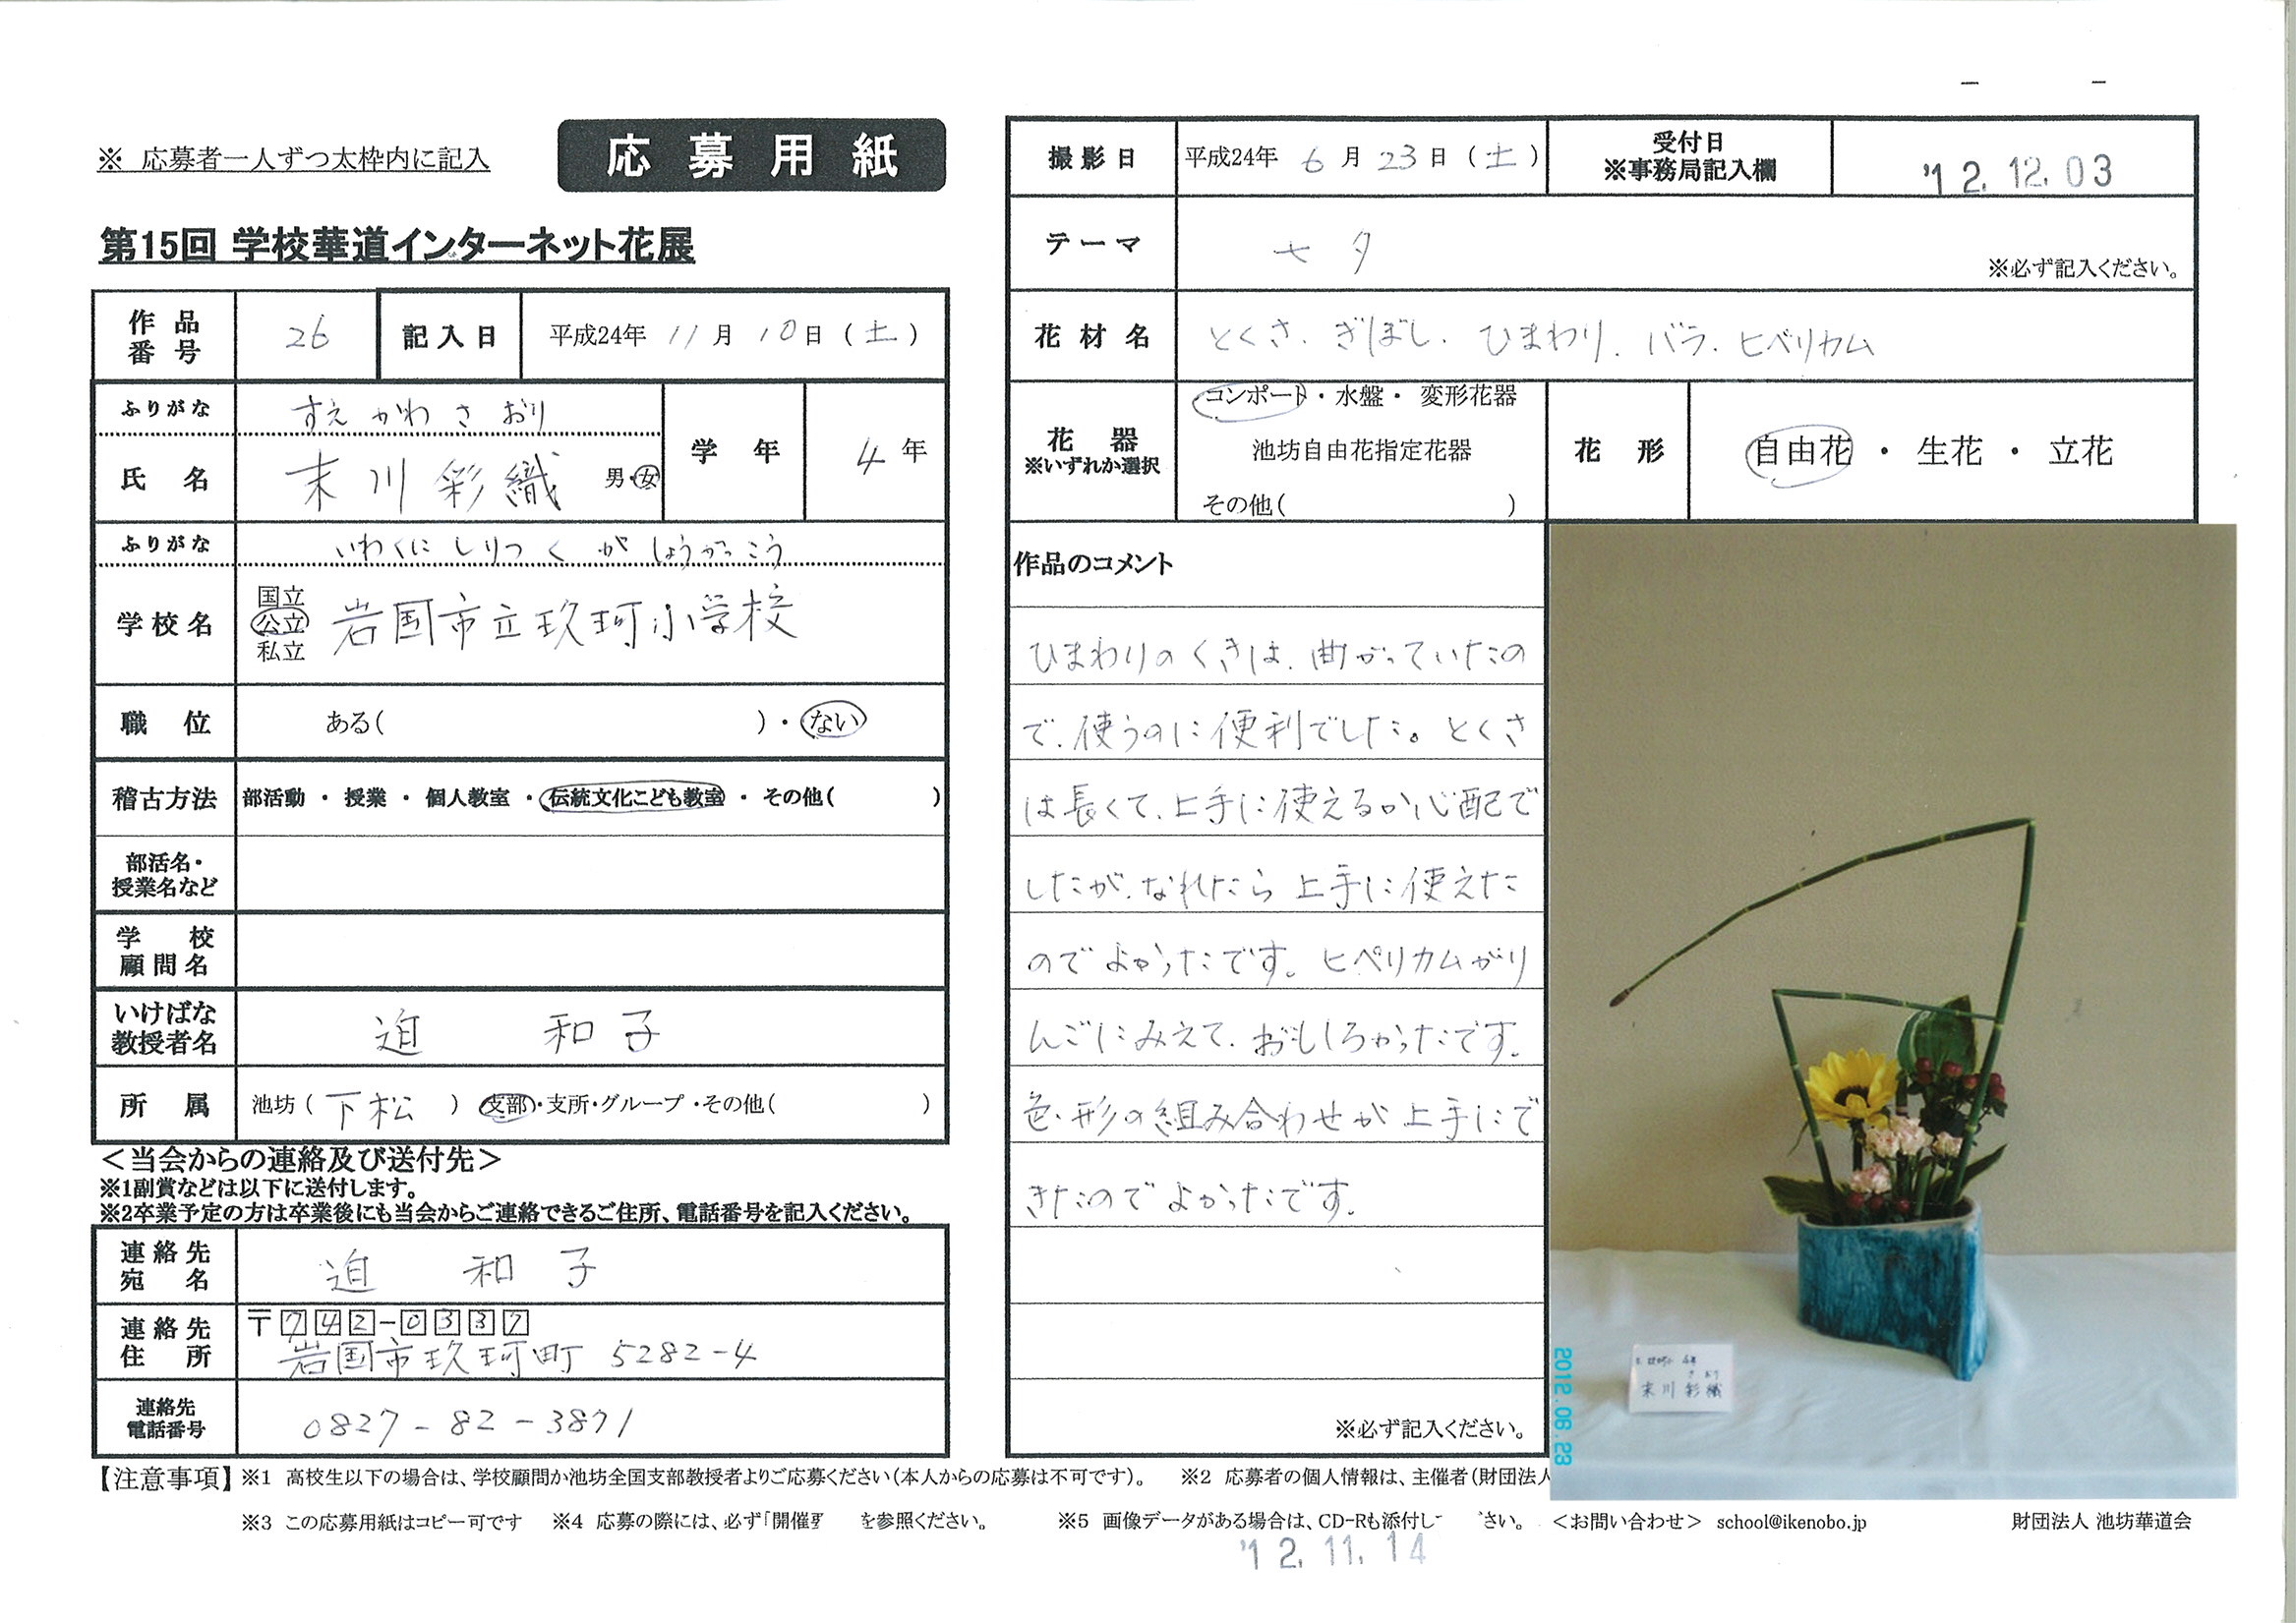 ※ 応募者一人ずつ太枠内に記入
応募用紙
第15回 学校華道インターネット花展
作品番号 26 記入日 平成24年 11月 10日(土)
ふりがな すえ かわ さ おり
氏名 末川彩織 男・女 学年 4年
ふりがな いわくに しりつ く が しょうがっこう
学校名 国立 公立 私立 岩国市立玖珂小学校
職位 ある( )・ない
稽古方法 部活動 ・ 授業 ・ 個人教室 ・ 伝統文化こども教室 ・ その他( )
部活名・授業名など
学校顧問名
いけばな教授者名 迫 和子
所属 池坊( 下松 ) 支部・支所・グループ・その他( )
＜当会からの連絡及び送付先＞
※1副賞などは以下に送付します。
※2卒業予定の方は卒業後にも当会からご連絡できるご住所、電話番号を記入ください。
連絡先宛名 迫 和子
連絡先住所 〒742-0337
岩国市玖珂町 5282-4
連絡先電話番号 0827-82-3871
撮影日 平成24年 6月 23日(土) 受付日 ※事務局記入欄 '12.12.03
テーマ 七夕 ※必ず記入ください。
花材名 とくさ、ぎぼし、ひまわり、バラ、ヒペリカム
花器 ※いずれか選択 コンポート・水盤・ 変形花器
池坊自由花指定花器
その他( )
花形 自由花 ・ 生花 ・ 立花
作品のコメント
ひまわりのくきは、曲がっていたの
で、使うのに便利でした。とくさ
は長くて、上手に使えるか心配で
したが、なれたら上手に使えた
のでよかったです。ヒペリカムがり
んごにみえて、おもしろかったです。
色・形の組み合わせが上手にで
きたのでよかったです。
※必ず記入ください。
4年
さおり
末川彩織
2012.06.23
【注意事項】 ※1 高校生以下の場合は、学校顧問か池坊全国支部教授者よりご応募ください(本人からの応募は不可です)。 ※2 応募者の個人情報は、主催者(財団法人
※3 この応募用紙はコピー可です ※4 応募の際には、必ず「開催 を参照ください。 ※5 画像データがある場合は、CD-Rも添付し さい。 ＜お問い合わせ＞ school@ikenobo.jp 財団法人 池坊華道会
'12.11.14